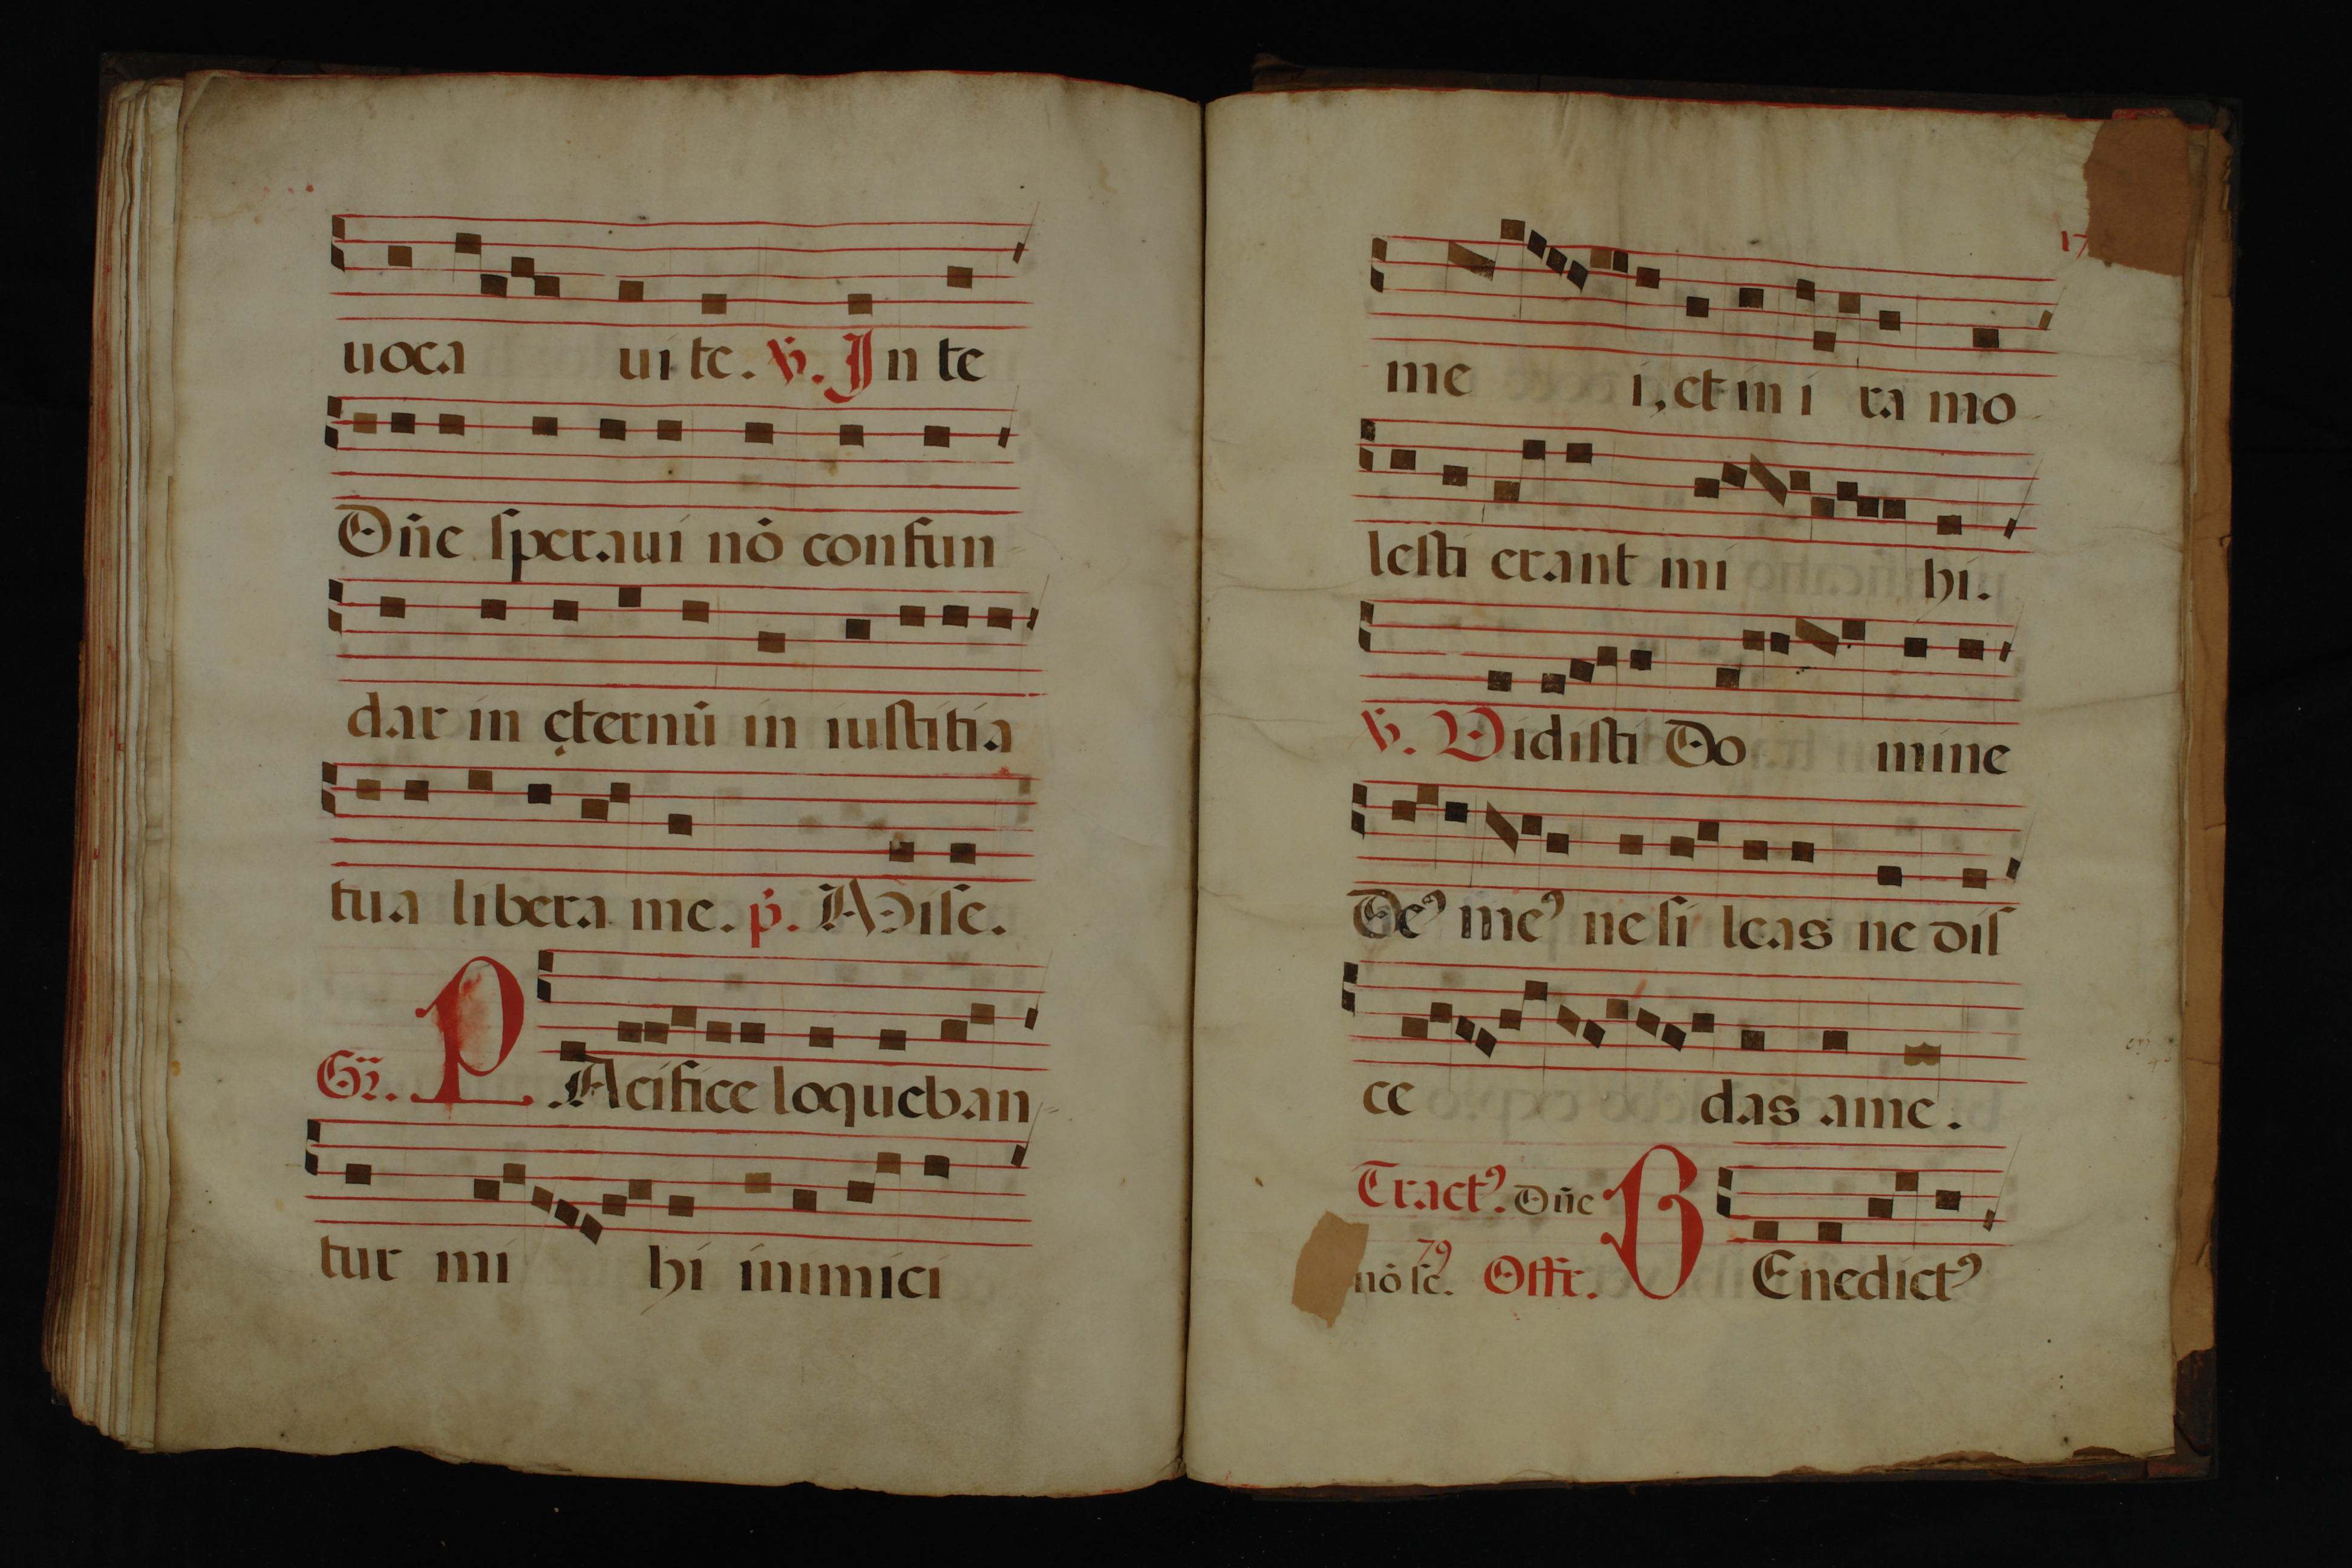 uoca ui te. ℣. In te
Dn̄e speraui nō confun
dar in ęternū in iustitia
tua libera me. p̄. ADise.
Gr̄. PAcifice loqueban
tur mi hi inimici
17
me i, et in i ra mo
lesti erant mi hi.
℣. Vidisti Do mine
Deꝰ meꝰ ne si leas ne dis
ce das a me.
Tractꝰ. Dn̄e BEnedictꝰ
79
nō se. Offr.